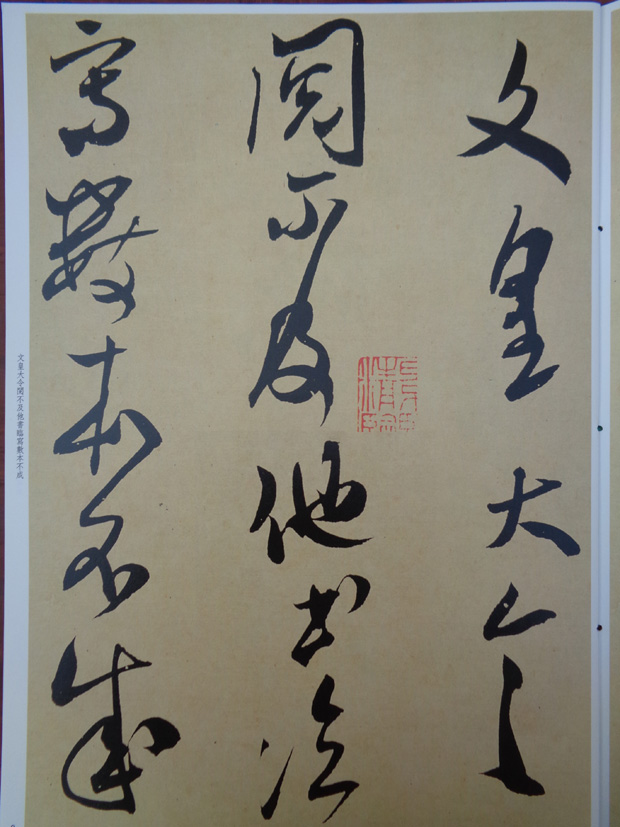 文皇大令
閱不及他書臨
寫數本不成
文皇大令閱不及他書臨寫數本不成